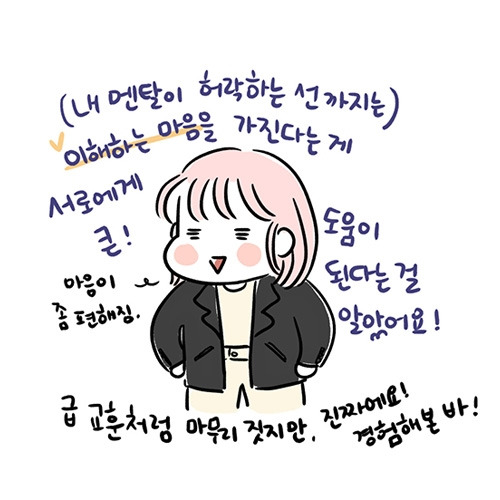 (내 멘탈이 허락하는 선까지는)
이해하는 마음을 가진다는 게
서로에게
큰!
도움이
된다는 걸
알았어요!
마음이
좀 편해짐.
급 교훈처럼 마무리 짓지만, 진짜에요!
경험해본 바!